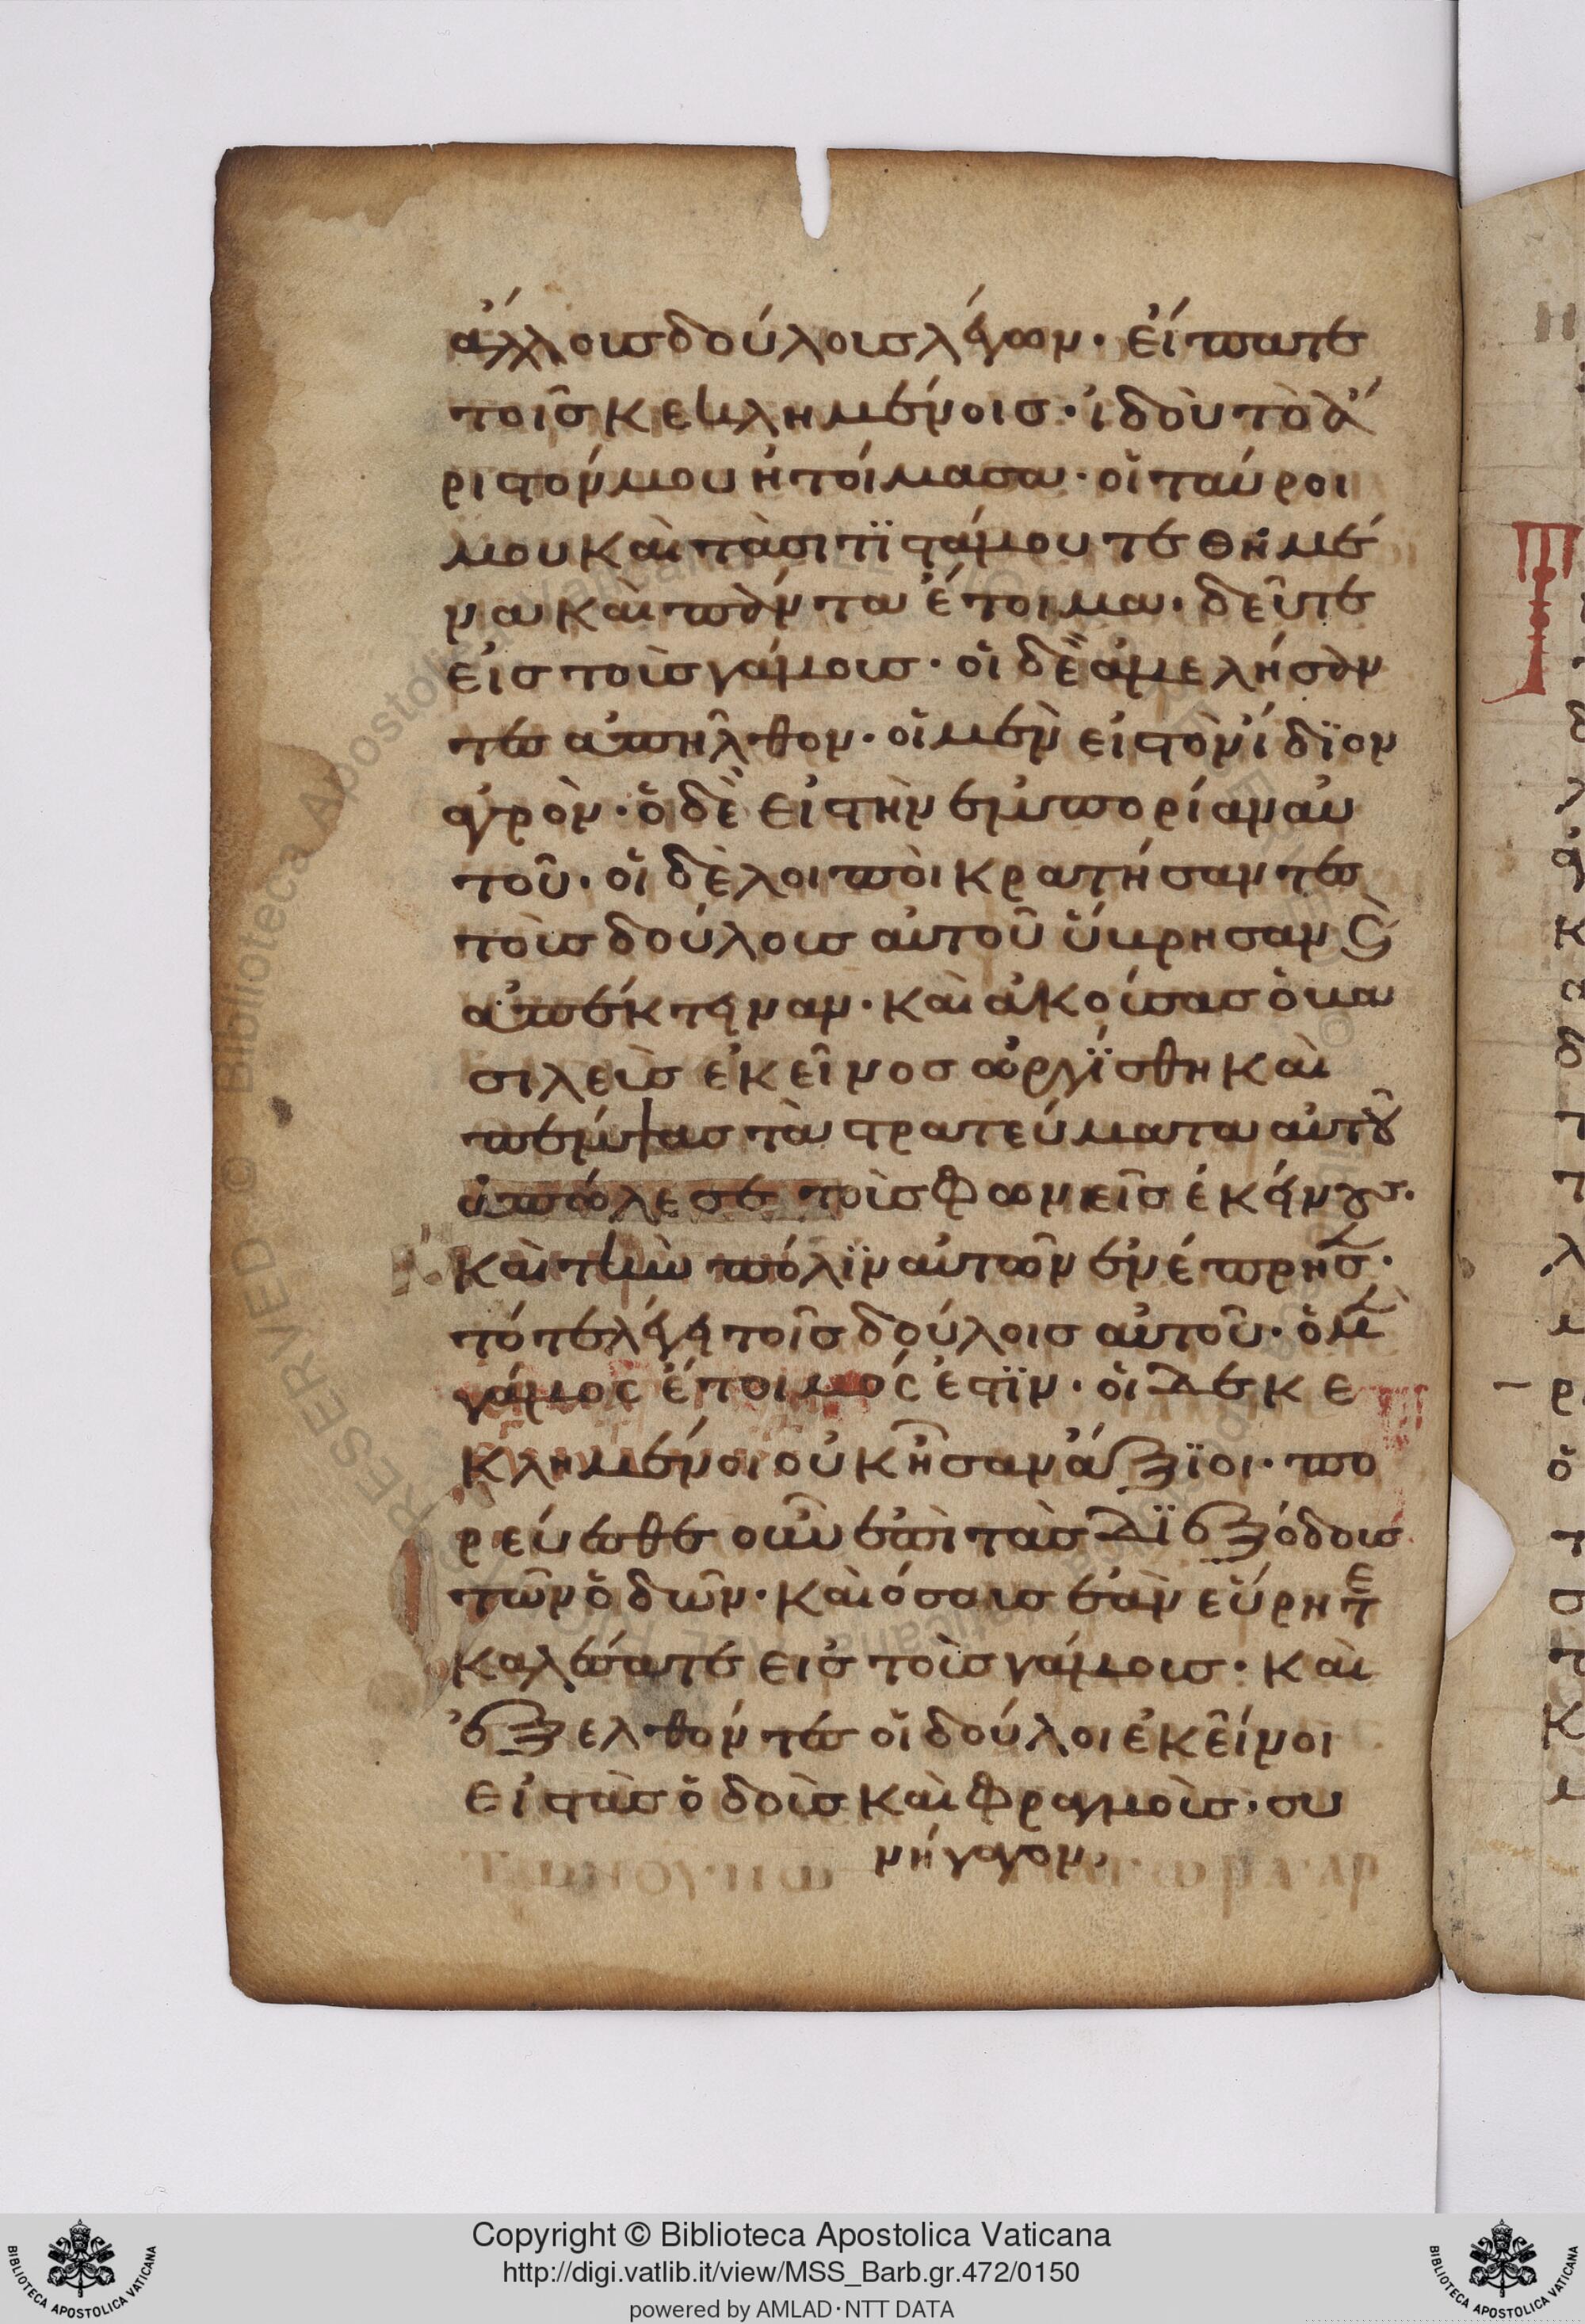 ἄλλους δούλους λέγων· εἴπατε
τοῖς κεκλημένοις· ἰδοὺ τὸ ἄ
ριστόν μου ἡτοίμασα· οἱ ταύροι
μου καὶ τὰ σιτϊστά μου τεθημέ
να καὶ πάντα ἕτοιμα· δεῦτε
εἰς τοὺς γάμους· οἱ δὲ ἀμελήσαν
τες ἀπῆλθον· οἱ μὲν εἰς τὸν ἴδϊον
ἀγρὸν· ὁ δὲ εἰς τὴν ἐμπορίαν αὐ
τοῦ· οἱ δὲ λοιποὶ κρατήσαντες
τοὺς δούλους αὐτοῦ ὕβρησαν κ̀
ἀπέκτειναν· καὶ ἀκούσας ὁ βα
σιλεὺς ἐκεῖνος ὠργΐσθη καὶ
πέμψας τὰ στρατεύματα αὐτοῦ
ἀπώλεσε τοὺς φωνεῖς ἐκείνους.
καὶ τὴν πόλϊν αὐτῶν ἐνέπρησ·
τότε λέγει τοῖς δούλοις αὐτοῦ· ὁ μὲν
γάμος ἕτοιμός ἐστϊν· οἱ δὲ κε
κλημένοι οὐκ ἦσαν ἄξϊοι· πο
ρεύεσθε οὖν ἐπὶ τὰς δϊεξόδους
τῶν ὁδῶν· καὶ όσους ἐὰν εὕρητε
καλέσατε εις τοὺς γάμους· καὶ
ἐξελθόντες οἱ δούλοι ἐκεῖνοι
εἰς τὰς ὁδοὺς καὶ φραγμοὺς· συ
νήγαγον,
Copyright © Biblioteca Apostolica Vaticana
http://digi.vatlib.it/view/MSS_Barb.gr.472/0150
powered by AMLAD·NTT DATA
BIBLIOTECA APOSTOLICA VATICANA
BIBLIOTECA APOSTOLICA VATICANA